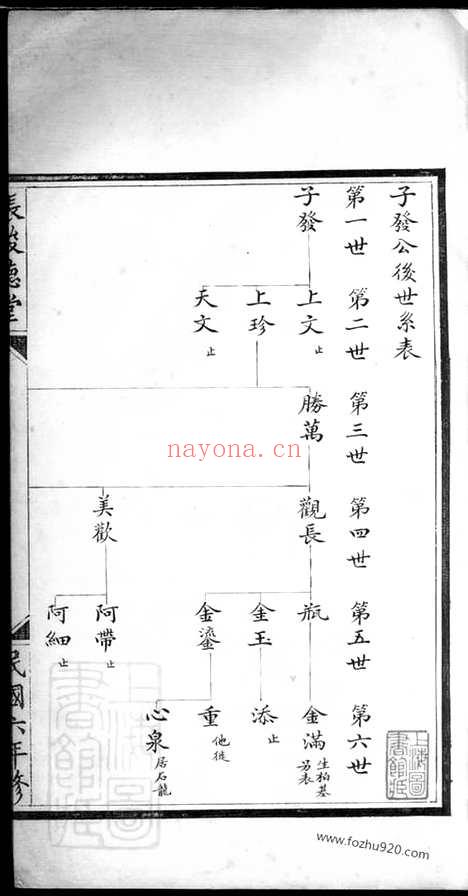 子發公後世系表
第一世 第二世 第三世 第四世 第五世 第六世
子發
上文 止
上珍
天文 止
勝萬
觀長
美歡
瓶
金玉
金鎏
阿帶 止
阿細 止
金滿 生柏基 另表
添 止
重 他徙
心泉 居石龍
德堂
民國六年修
上海圖書館藏
上海圖書館藏
nayona.cn
www.fozhu920.com